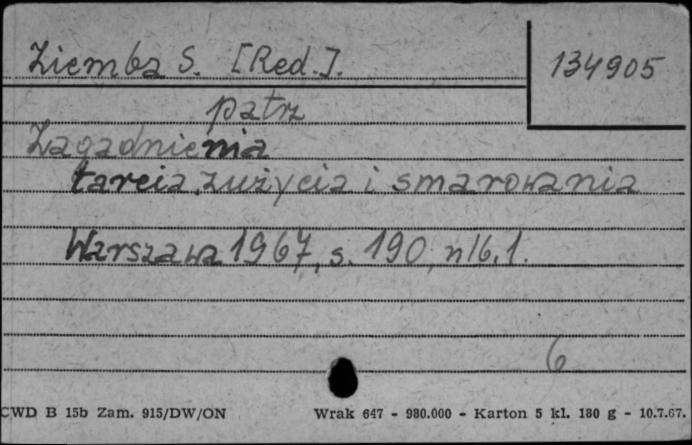 Ziemba S. [Red.].
134905
patrz
Zagadnienia
tarcia, zużycia i smarowania
Warszawa 1967, s. 190, nlb. 1.
6
CWD B 15b Zam. 915/DW/ON Wrak 647 - 980.000 - Karton 5 kl. 180 g - 10.7.67.